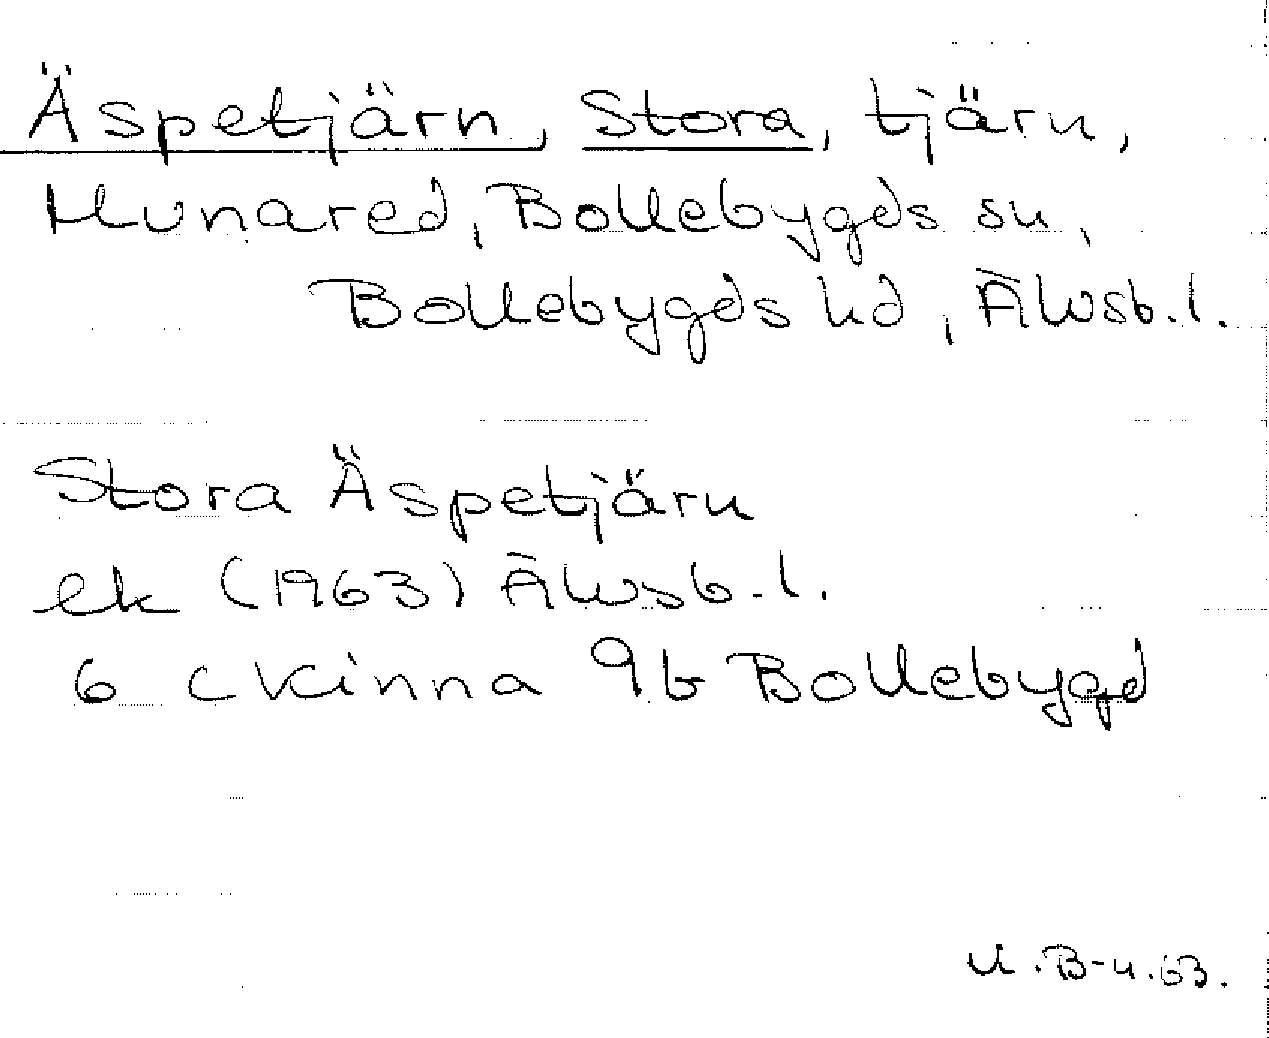 Äspetjärn, Stora, tjärn,
Hunared, Bollebygds sn,
Bollebygds hd, Älvsb. l.
Stora Äspetjärn
ek (1963) Älvsb. l.
6 c Kinna 9b Bollebygd
U.B-n.63.